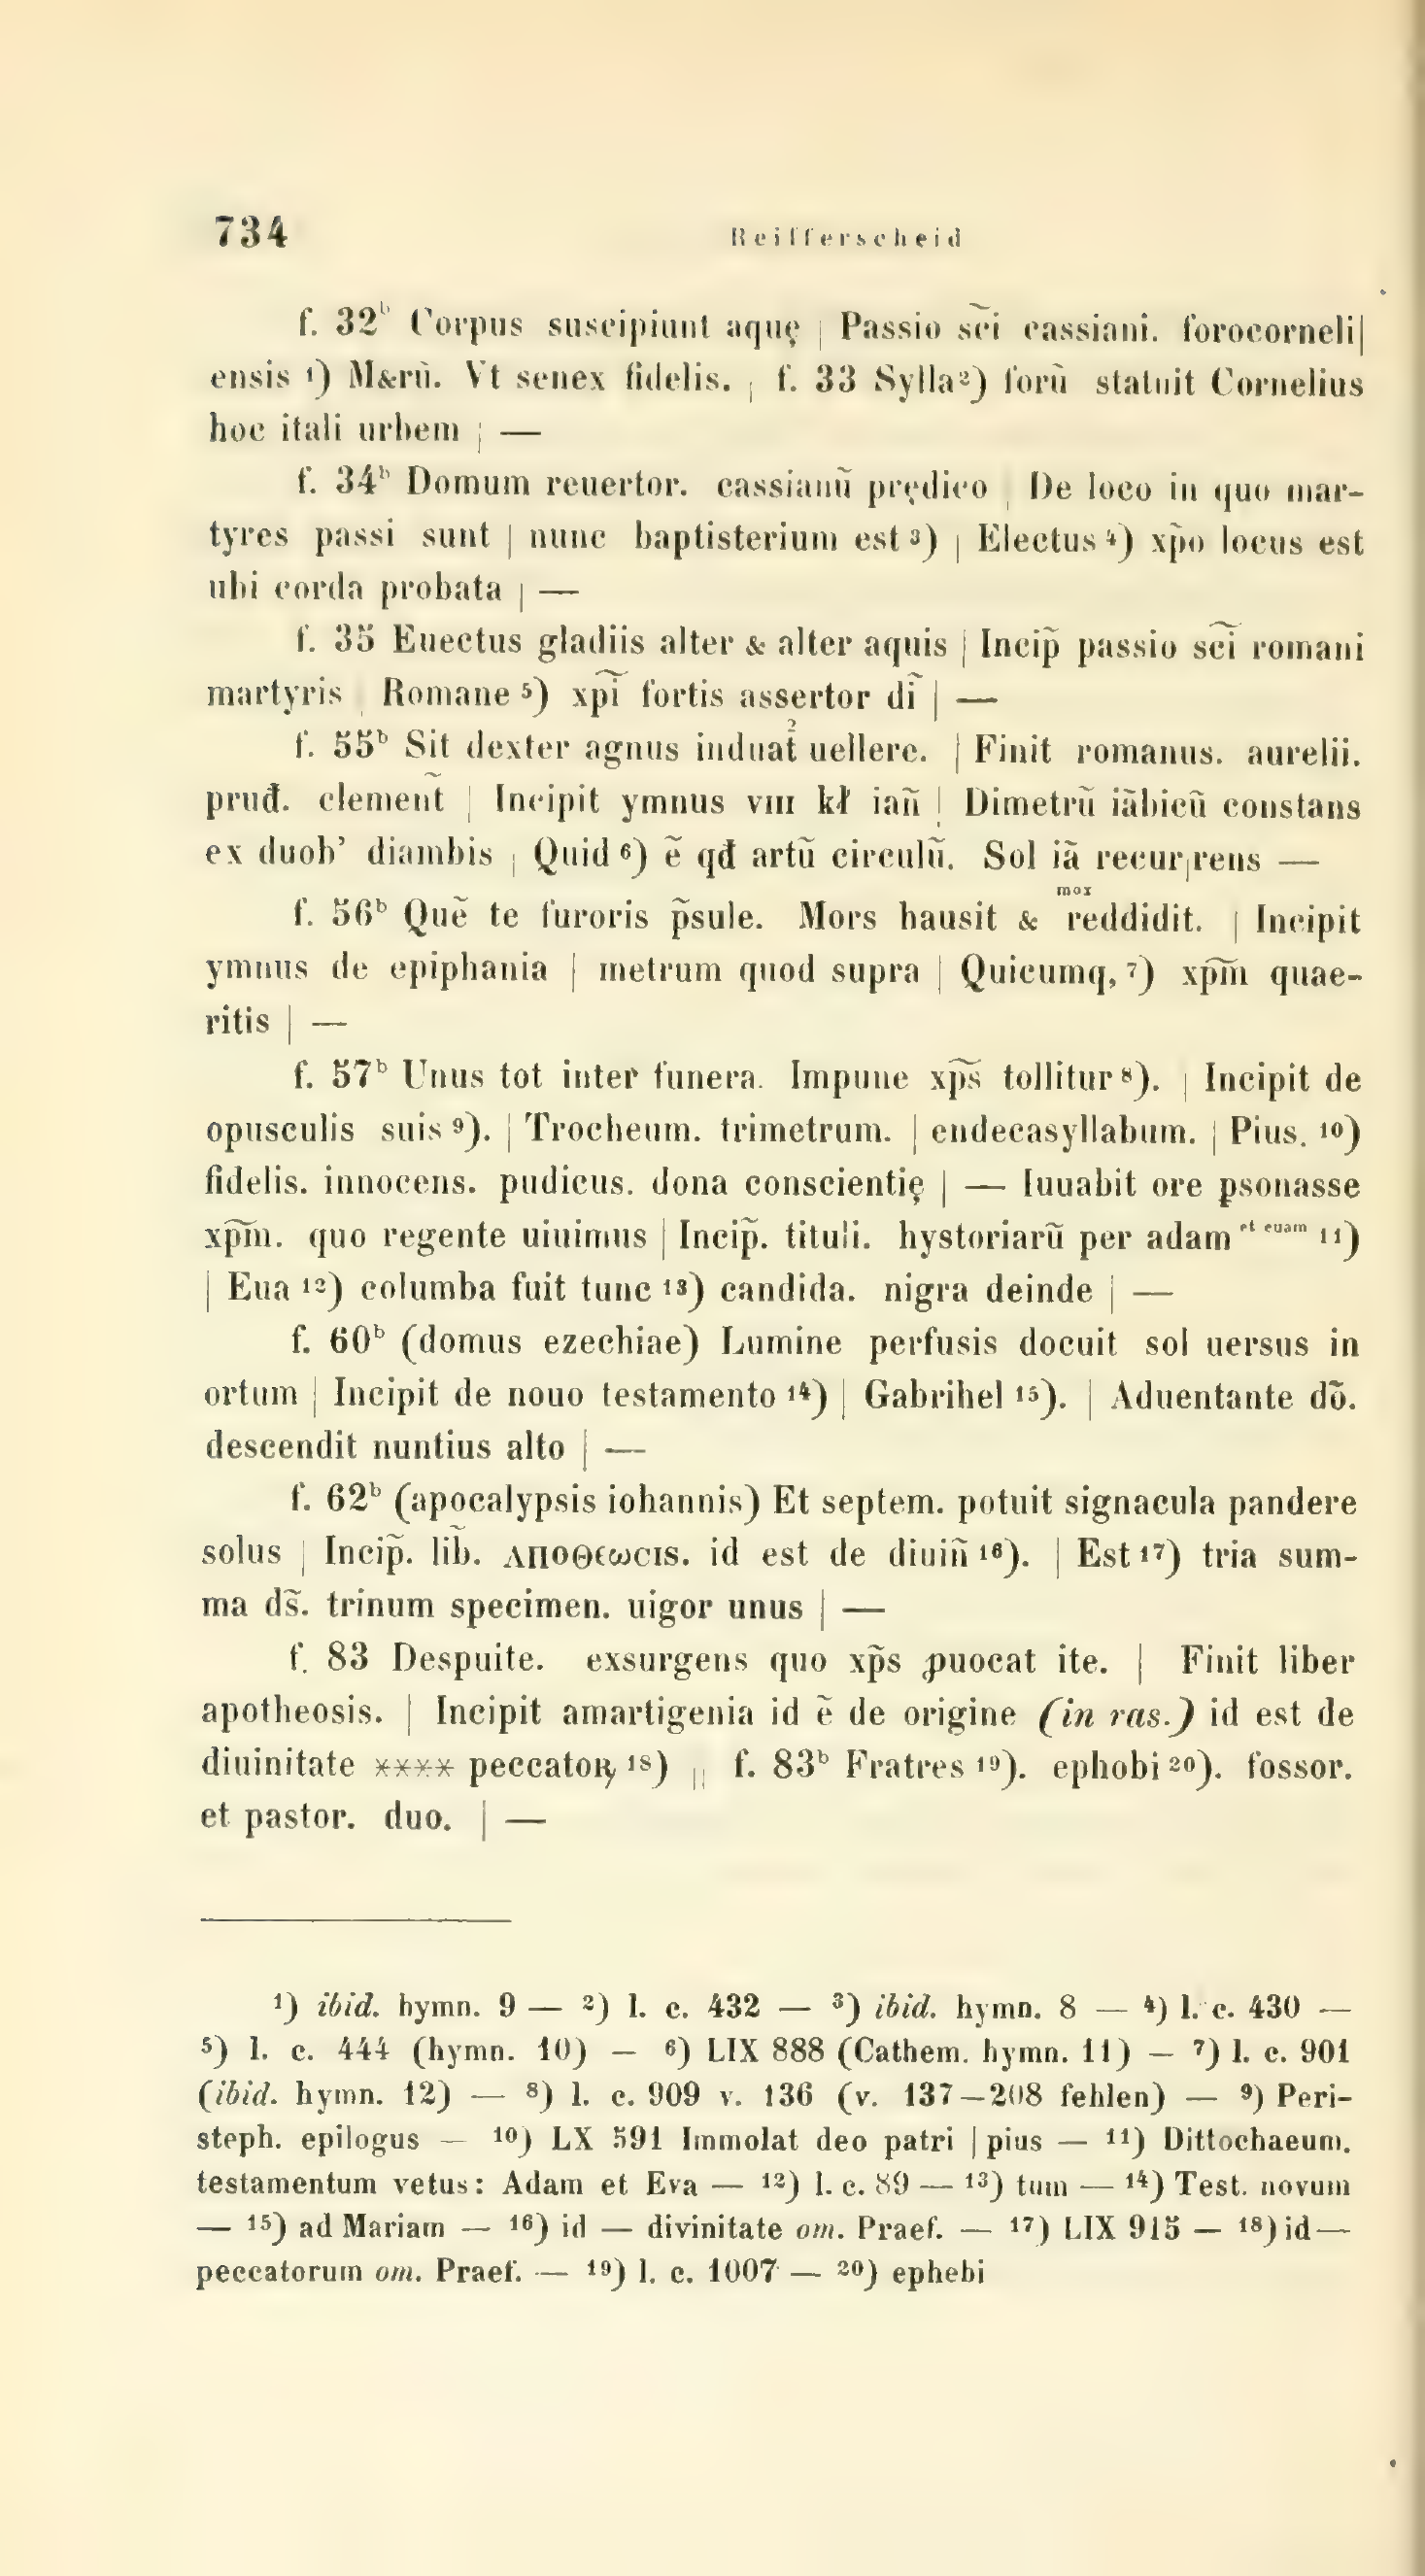 734 Reifferscheid
f. 32ᵇ Corpus suscipiunt aquę | Passio sc͠i cassiani. forocorneli|
ensis ¹) M&rũ. Vt senex fidelis. | f. 33 Sylla²) forũ statuit Cornelius
hoc itali urbem | —
f. 34ᵇ Domum reuertor. cassianũ prędico | De loco in quo mar-
tyres passi sunt | nunc baptisterium est³) | Electus⁴) xp̃o locus est
ubi corda probata | —
f. 35 Euectus gladiis alter & alter aquis | Incip̃ passio sc͠i romani
martyris | Romane⁵) xp͠i fortis assertor dĩ | —
f. 55ᵇ Sit dexter agnus induat̉ uellere. | Finit romanus. aurelii.
pruđ. clement̃ | Incipit ymnus VIII kł iañ | Dimetrũ iãbicũ constans
ex duob’ diambis | Quid⁶) ẽ qđ artũ circulũ. Sol iã recur|rens —
f. 56ᵇ Quẽ te furoris p̃sule. Mors hausit & ᵐᵒˣ reddidit. | Incipit
ymnus de epiphania | metrum quod supra | Quicumq,⁷) xp͠m quae-
ritis | —
f. 57ᵇ Unus tot inter funera. Impune xp͠s tollitur⁸). | Incipit de
opusculis suis⁹). | Trocheum. trimetrum. | endecasyllabum. | Pius.¹⁰)
fidelis. innocens. pudicus. dona conscientię | — Iuuabit ore ꝑsonasse
xp͠m. quo regente uiuimus | Incip̃. tituli. hystoriarũ per adam ᵉᵗ ᵉᵘᵃᵐ ¹¹)
| Eua¹²) columba fuit tunc¹³) candida. nigra deinde | —
f. 60ᵇ (domus ezechiae) Lumine perfusis docuit sol uersus in
ortum | Incipit de nouo testamento¹⁴) | Gabrihel¹⁵). | Aduentante dõ.
descendit nuntius alto | —
f. 62ᵇ (apocalypsis iohannis) Et septem. potuit signacula pandere
solus | Incip̃. lib̃. ΛΠΟΘЄωCIS. id est de diuiñ¹⁶). | Est¹⁷) tria sum-
ma ds̃. trinum specimen. uigor unus | —
f. 83 Despuite. exsurgens quo xp̃s ꝓuocat ite. | Finit liber
apotheosis. | Incipit amartigenia id ẽ de origine (in ras.) id est de
diuinitate **** peccatoꝝ¹⁸) || f. 83ᵇ Fratres¹⁹). ephobi²⁰). fossor.
et pastor. duo. | —
¹) ibid. hymn. 9 — ²) l. c. 432 — ³) ibid. hymn. 8 — ⁴) l. c. 430 —
⁵) l. c. 444 (hymn. 10) — ⁶) LIX 888 (Cathem. hymn. 11) — ⁷) l. c. 901
(ibid. hymn. 12) — ⁸) l. c. 909 v. 136 (v. 137—208 fehlen) — ⁹) Peri-
steph. epilogus — ¹⁰) LX 591 Immolat deo patri | pius — ¹¹) Dittochaeum.
testamentum vetus: Adam et Eva — ¹²) l. c. 89 — ¹³) tum — ¹⁴) Test. novum
— ¹⁵) ad Mariam — ¹⁶) id — divinitate om. Praef. — ¹⁷) LIX 915 — ¹⁸) id—
peccatorum om. Praef. — ¹⁹) l. c. 1007 — ²⁰) ephebi